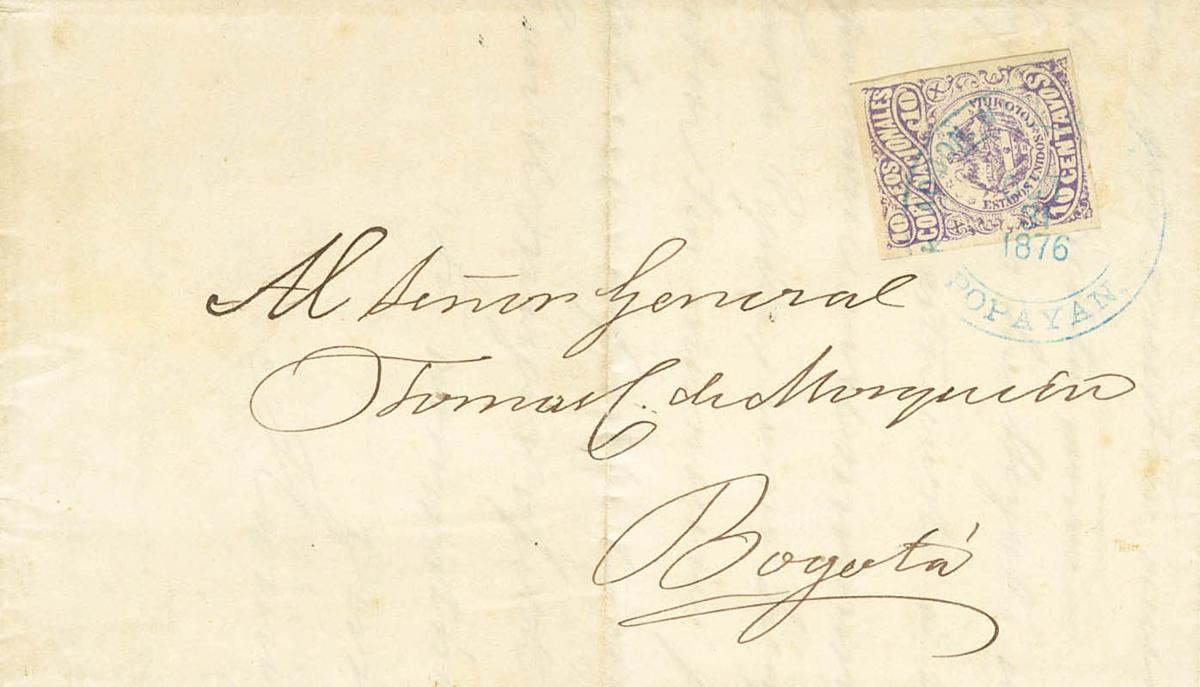 10 CORREOS NACIONALES 10
ESTADOS UNIDOS DE COLOMBIA
10 CENTAVOS
1876
POPAYAN.
Al Señor General
Tomas C. de Mosquera
Bogotá